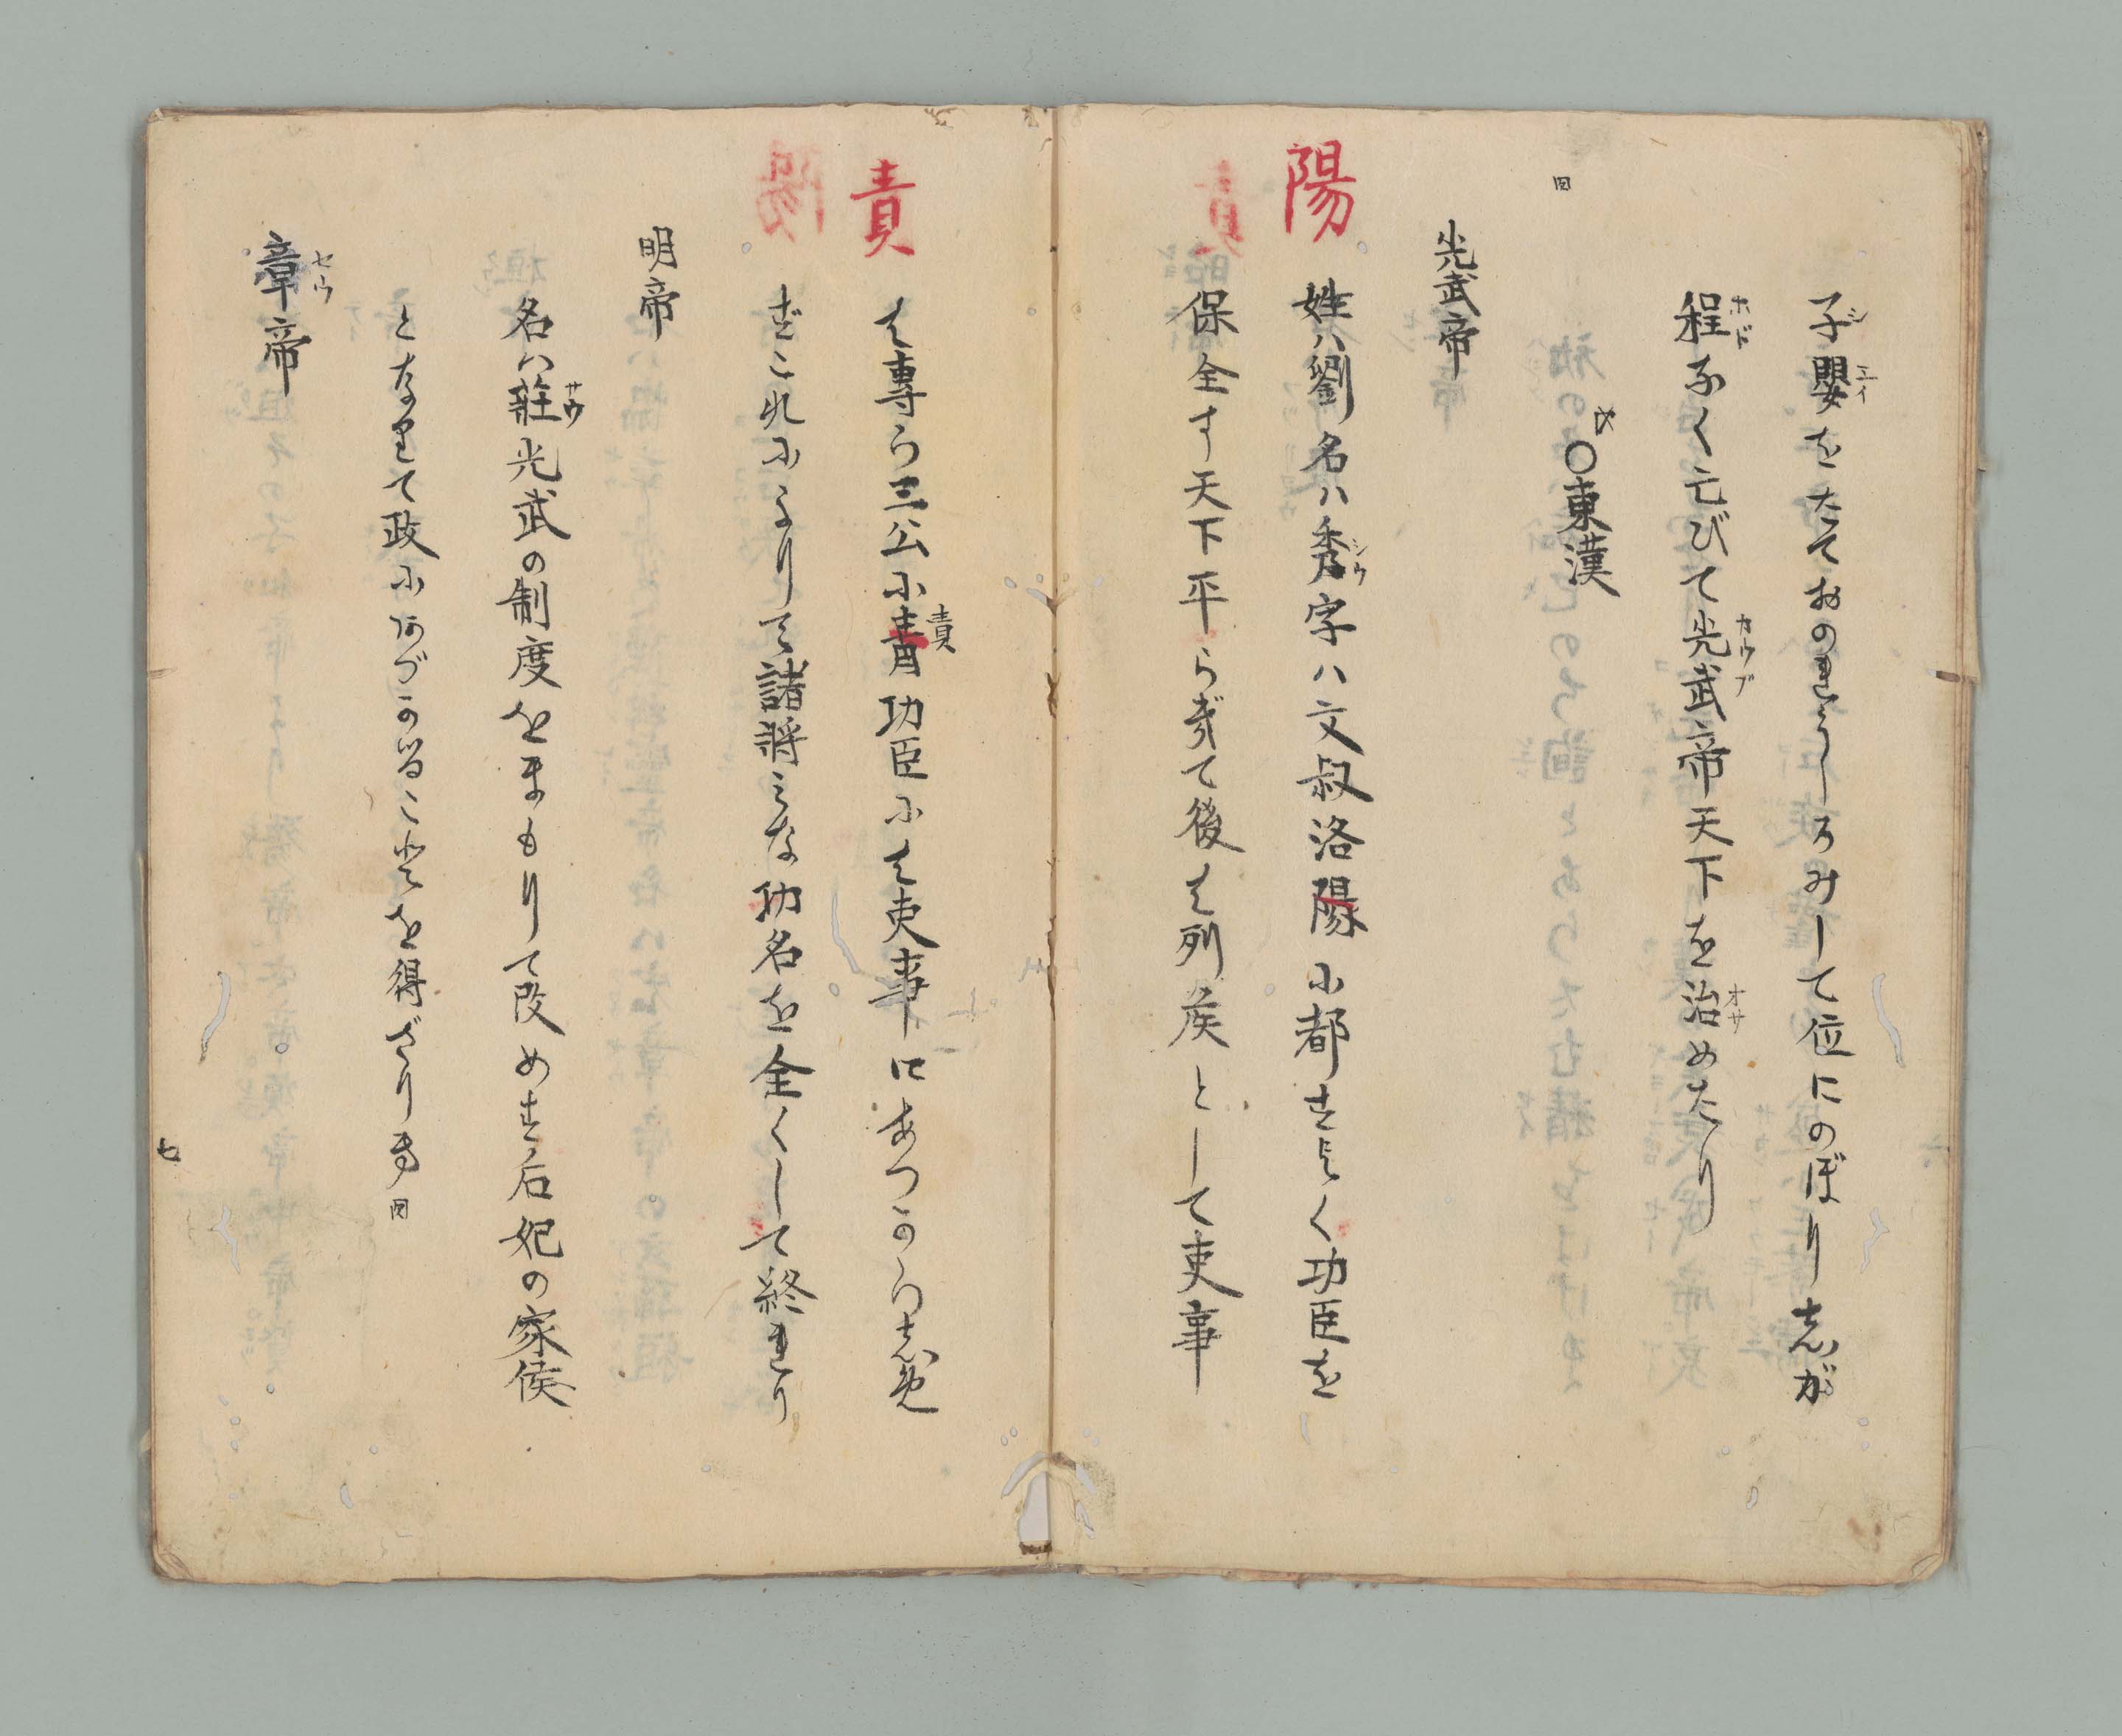 子嬰をたておのれうしろみして位にのぼりしが
程なく亡びて光武帝天下を治めたり
〇東漢
光武帝
陽
姓ハ劉名ハ秀字ハ文叔洛陽に都すよく功臣を
保全す天下平らぎて後は列侯として吏事
責
は専ら三公に責功臣には吏事にあつからしめ
ずこれによりて諸将みな功名を全くして終れり
明帝
名ハ荘光武の制度をまもりて改めず后妃の家侯
となりて政にあづかることを得ざりき
章帝
七